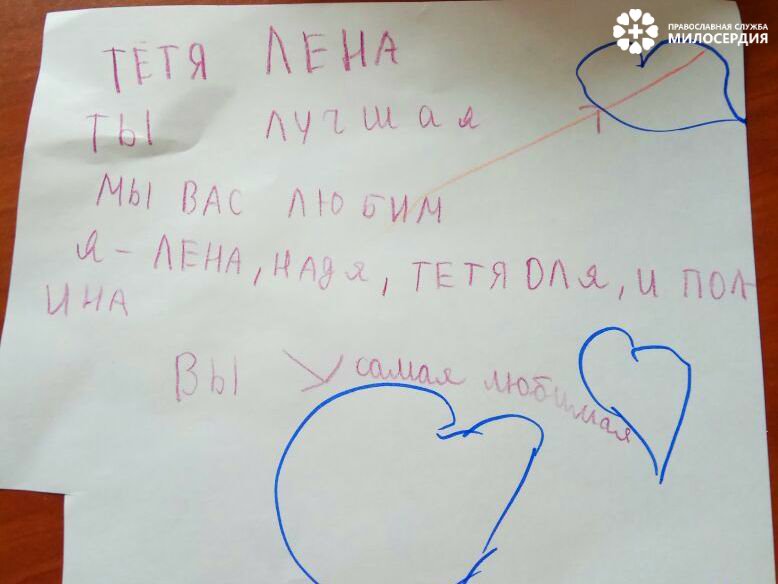 ПРАВОСЛАВНАЯ СЛУЖБА
МИЛОСЕРДИЯ
ТЁТЯ ЛЕНА
ТЫ ЛУЧШАЯ
МЫ ВАС ЛЮБИМ
Я - ЛЕНА, НАДЯ, ТЕТЯ ОЛЯ, И ПОЛ-
ИНА
ВЫ самая любимая